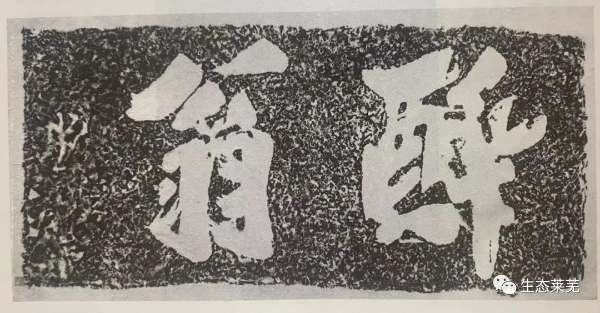 醉翁
生态莱芜